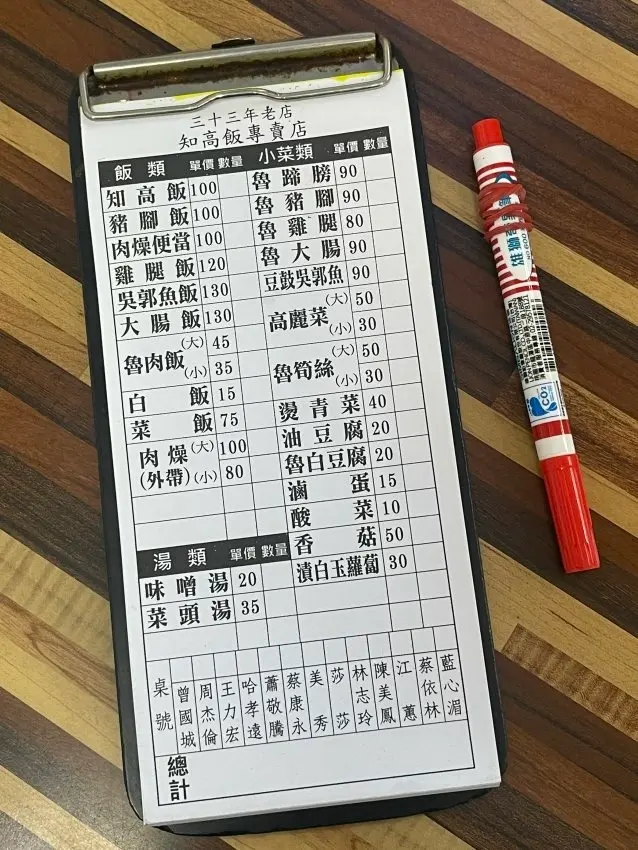 三十三年老店
知高飯專賣店
飯類 單價 數量
知高飯 100
豬腳飯 100
肉燥便當 100
雞腿飯 120
吳郭魚飯 130
大腸飯 130
魯肉飯 (大) 45
(小) 35
白飯 15
菜飯 75
肉燥(外帶) (大) 100
(小) 80
湯類 單價 數量
味噌湯 20
菜頭湯 35
小菜類 單價 數量
魯蹄膀 90
魯豬腳 90
魯雞腿 80
魯大腸 90
豆鼓吳郭魚 90
高麗菜 (大) 50
(小) 30
魯筍絲 (大) 50
(小) 30
燙青菜 40
油豆腐 20
魯白豆腐 20
滷蛋 15
酸菜 10
香菇 50
漬白玉蘿蔔 30
桌號
曾國城
周杰倫
王力宏
哈孝遠
蕭敬騰
蔡康永
美秀
莎莎
林志玲
陳美鳳
江蕙
蔡依林
藍心湄
總計
雄獅
NO.600
CO2